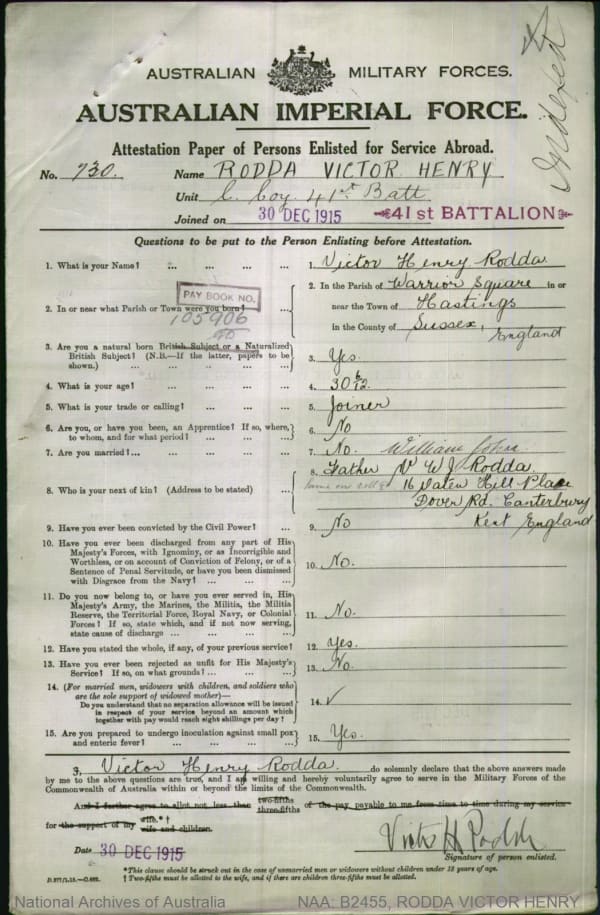 Indexed
AUSTRALIAN MILITARY FORCES.
AUSTRALIAN IMPERIAL FORCE.
Attestation Paper of Persons Enlisted for Service Abroad.
No. 730. Name RODDA VICTOR HENRY
Unit C. Coy 41st Batt
Joined on 30 DEC 1915 41st BATTALION
Questions to be put to the Person Enlisting before Attestation.
1. What is your Name? ... ... ... ... 1. Victor Henry Rodda
2. In or near what Parish or Town were you born? ... 2. In the Parish of Warrior Square in or
near the Town of Hastings
in the County of Sussex, England
PAY BOOK NO.
105906
3. Are you a natural born British Subject or a Naturalized
British Subject? (N.B.—If the latter, papers to be
shown.) ... ... ... ... ... 3. Yes.
4. What is your age? ... ... ... ... 4. 30 6/12
5. What is your trade or calling? ... ... ... 5. Joiner
6. Are you, or have you been, an Apprentice? If so, where,
to whom, and for what period? ... ... ... 6. No
7. Are you married? ... ... ... ... 7. No. William John
8. Who is your next of kin? (Address to be stated) ... 8. Father W J Rodda.
16 Hill Place
Dover Rd, Canterbury
Kent England
9. Have you ever been convicted by the Civil Power? ... 9. No
10. Have you ever been discharged from any part of His
Majesty's Forces, with Ignominy, or as Incorrigible and
Worthless, or on account of Conviction of Felony, or of a
Sentence of Penal Servitude, or have you been dismissed
with Disgrace from the Navy? ... ... ... 10. No.
11. Do you now belong to, or have you ever served in, His
Majesty's Army, the Marines, the Militia, the Militia
Reserve, the Territorial Force, Royal Navy, or Colonial
Forces? If so, state which, and if not now serving,
state cause of discharge ... ... ... ... 11. No.
12. Have you stated the whole, if any, of your previous service? 12. Yes.
13. Have you ever been rejected as unfit for His Majesty's
Service? If so, on what grounds? ... ... ... 13. No.
14. (For married men, widowers with children, and soldiers who
are the sole support of widowed mother)—
Do you understand that no separation allowance will be issued
in respect of your service beyond an amount which
together with pay would reach eight shillings per day? 14. ✓
15. Are you prepared to undergo inoculation against small pox
and enteric fever? ... ... ... ... 15. Yes.
I, Victor Henry Rodda. do solemnly declare that the above answers made
by me to the above questions are true, and I am willing and hereby voluntarily agree to serve in the Military Forces of the
Commonwealth of Australia within or beyond the limits of the Commonwealth.
And I further agree to allot not less than two-fifths three-fifths of the pay payable to me from time to time during my service
for the support of my wife.*† wife and children.
Date 30 DEC 1915 Victor H Rodda
Signature of person enlisted.
*This clause should be struck out in the case of unmarried men or widowers without children under 18 years of age.
† Two-fifths must be allotted to the wife, and if there are children three-fifths must be allotted.
National Archives of Australia NAA: B2455, RODDA VICTOR HENRY